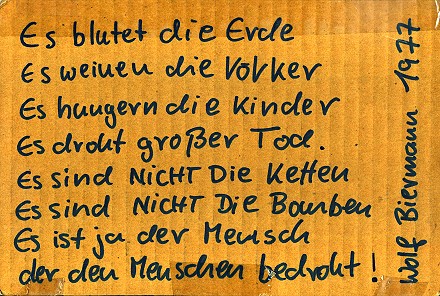 Es blutet die Erde
Es weinen die Völker
Es hungern die Kinder
Es droht großer Tod.
Es sind NICHT Die Ketten
Es sind NICHT Die Bomben
Es ist ja der Mensch
der den Menschen bedroht!
Wolf Biermann 1977